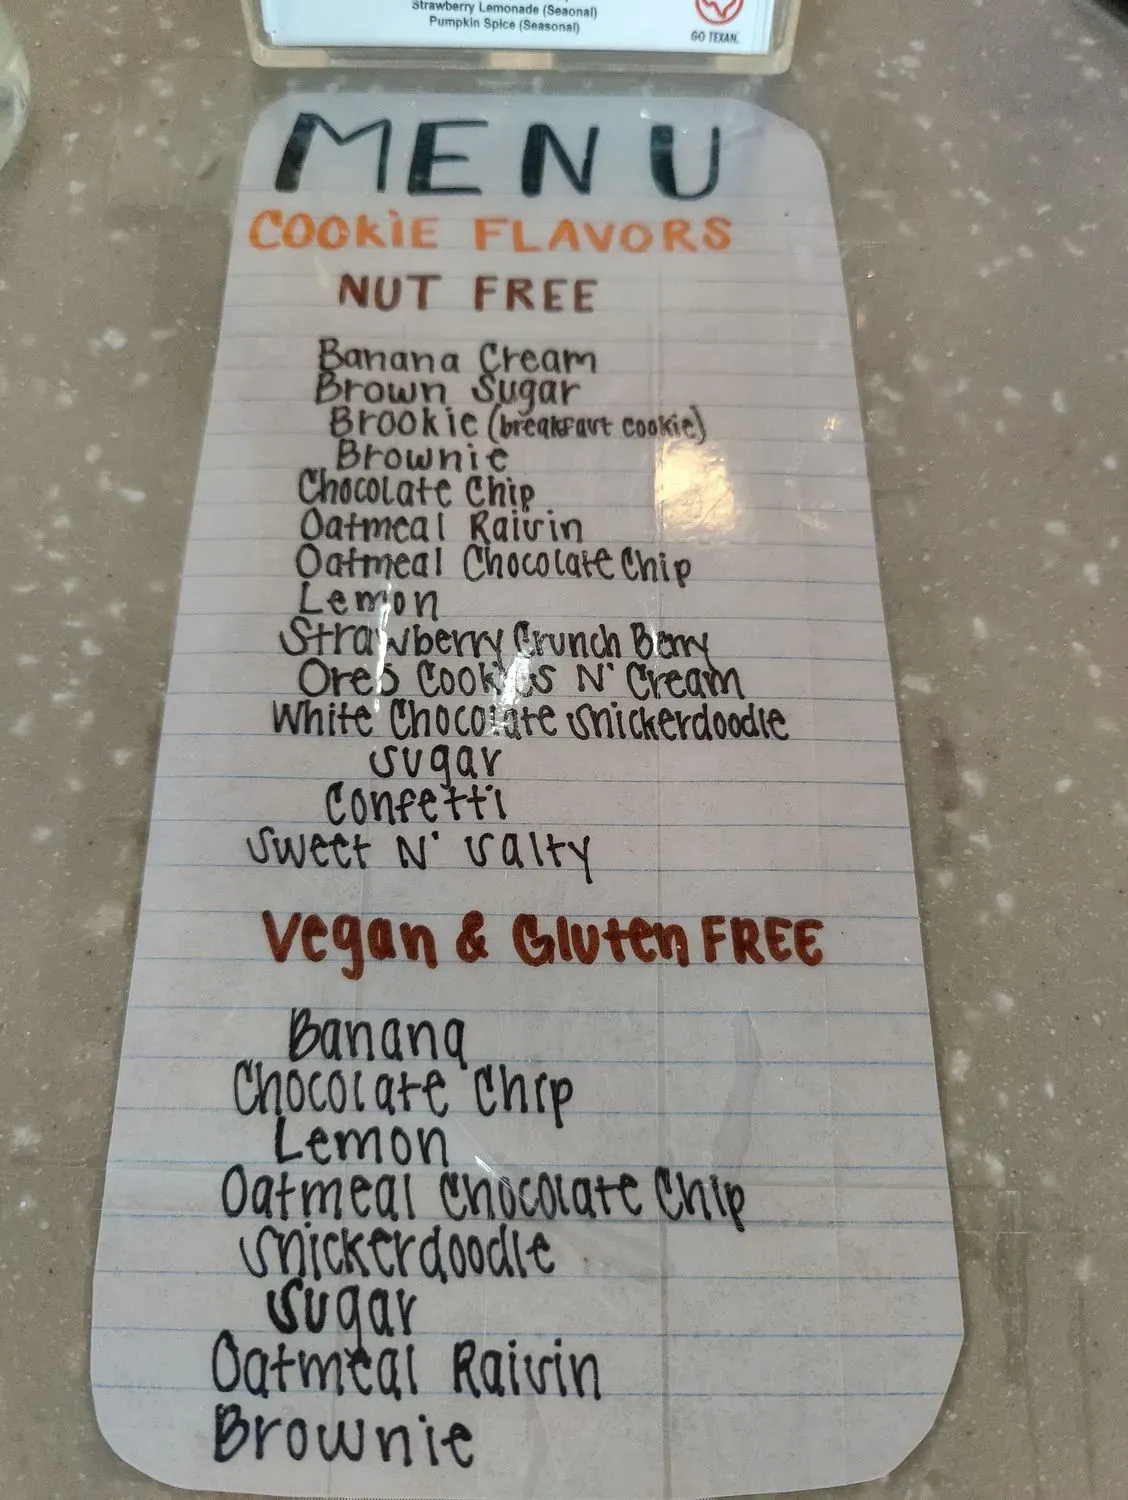 Strawberry Lemonade (Seaonal)
Pumpkin Spice (Seasonal)
GO TEXAN.
MENU
COOKiE FLAVORS
NUT FREE
Banana Cream
Brown Sugar
Brookie (breakfast cookie)
Brownie
Chocolate Chip
Oatmeal Raisin
Oatmeal Chocolate Chip
Lemon
Strawberry Crunch Berry
Oreo Cookies N' Cream
White Chocolate Snickerdoodle
Sugar
Confetti
Sweet N' Salty
Vegan & Gluten FREE
Banana
Chocolate Chip
Lemon
Oatmeal Chocolate Chip
Snickerdoodle
Sugar
Oatmeal Raisin
Brownie